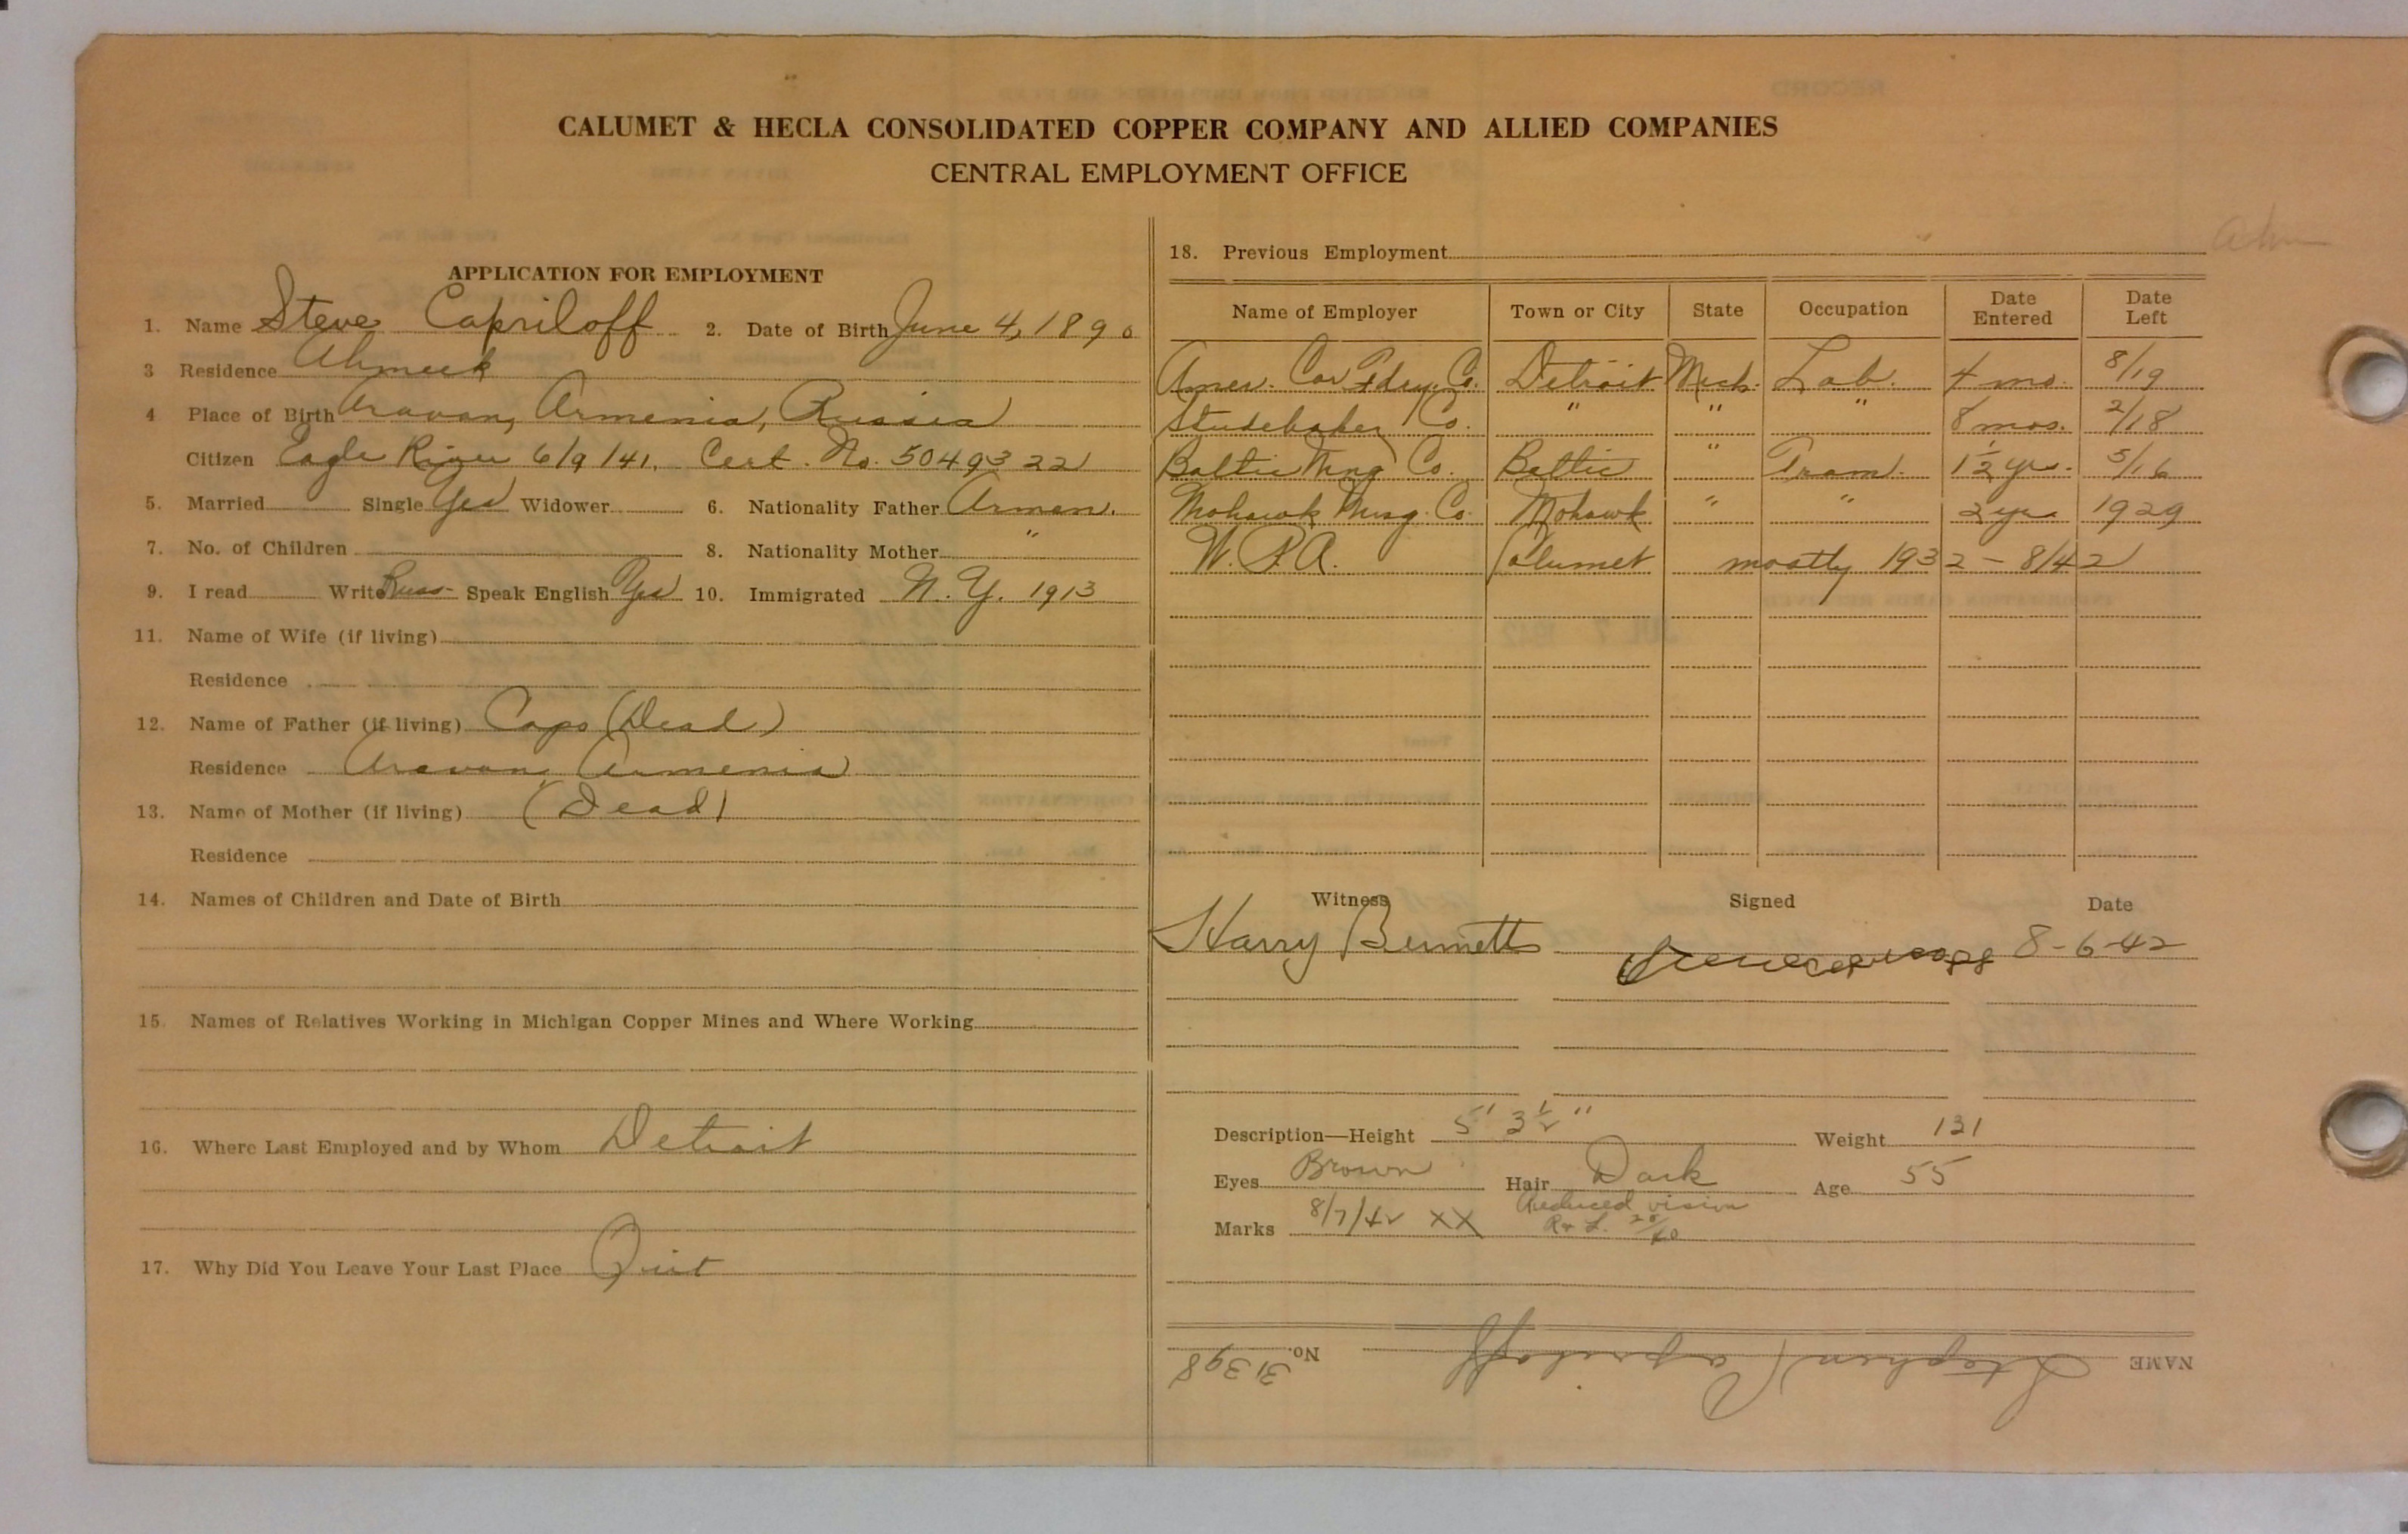 CALUMET & HECLA CONSOLIDATED COPPER COMPANY AND ALLIED COMPANIES
CENTRAL EMPLOYMENT OFFICE
APPLICATION FOR EMPLOYMENT
1. Name Steve Capriloff 2. Date of Birth June 4, 1890
3 Residence Ahmeek
4 Place of Birth Aravan, Armenia, Russia
Citizen Eagle River 6/9/41. Cert. No. 5049322
5. Married Single Yes Widower 6. Nationality Father Armen.
7. No. of Children 8. Nationality Mother "
9. I read Write Russ- Speak English Yes 10. Immigrated N.Y. 1913
11. Name of Wife (if living)
Residence
12. Name of Father (if living) Caps (Dead)
Residence Aravan, Armenia
13. Name of Mother (if living) (Dead)
Residence
14. Names of Children and Date of Birth
15. Names of Relatives Working in Michigan Copper Mines and Where Working
16. Where Last Employed and by Whom Detroit
17. Why Did You Leave Your Last Place Quit
18. Previous Employment
Name of Employer Town or City State Occupation Date Entered Date Left
Amer. Car Fdry. Co. Detroit Mich. Lab. 4 mo. 8/19
Studebaker Co. " " " 8 mos. 2/18
Baltic Mng Co. Baltic " Tram. 1 1/2 yrs. 5/16
Mohawk Mng. Co. Mohawk " " 2 yrs 1929
W.P.A. Calumet mostly 1932 - 8/42
Witness Signed Date
Harry Bennetts 8-6-42
Description—Height 5' 3 1/2" Weight 131
Eyes Brown Hair Dark Age 55
Marks 8/7/42 XX Reduced vision
R & L. 20/40
NAME Stephen Capriloff No. 31398